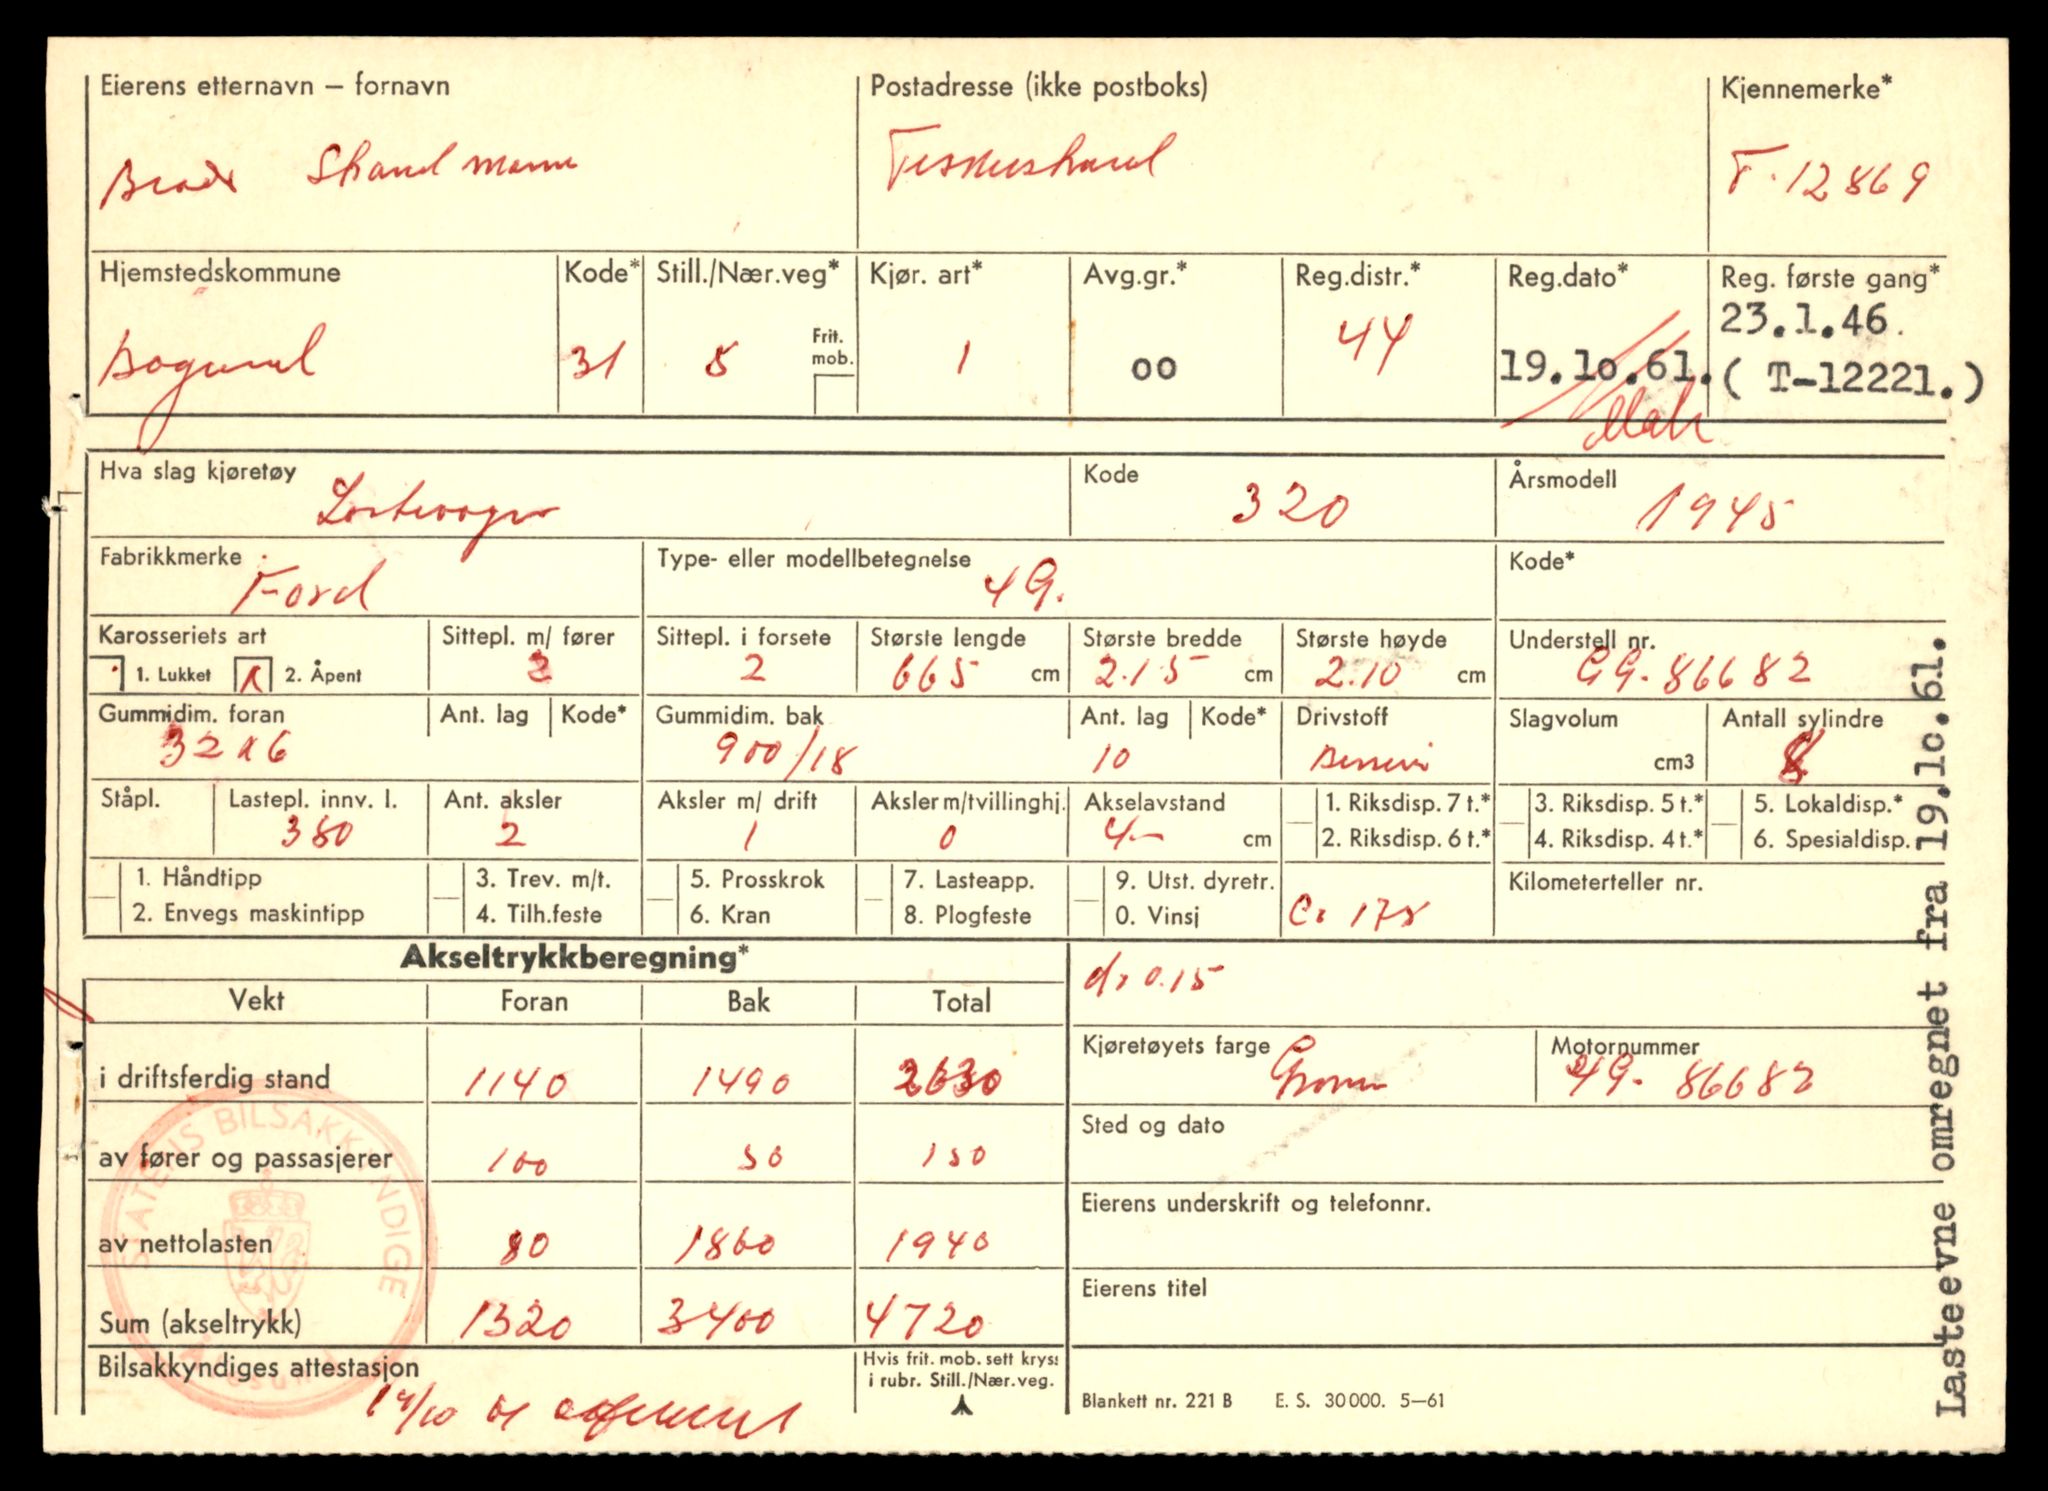 Eierens etternavn – fornavn Postadresse (ikke postboks) Kjennemerke*
Brødr Strandmann Fiskerstrand T-12869
Hjemstedskommune Kode* Still./Nær.veg* Kjør. art* Avg.gr.* Reg.distr.* Reg.dato* Reg. første gang*
Borgund 31 5 Frit. mob. 1 00 44 19.10.61. 23.1.46.
( T-12221.)
Hva slag kjøretøy Kode Årsmodell
Lastevogn 320 1945
Fabrikkmerke Type- eller modellbetegnelse Kode*
Ford 4G.
Karosseriets art Sittepl. m/ fører Sittepl. i forsete Største lengde Største bredde Største høyde Understell nr.
1. Lukket x 2. Åpent 2 2 665 cm 2.15 cm 2.10 cm GG-86682
Gummidim. foran Ant. lag Kode* Gummidim. bak Ant. lag Kode* Drivstoff Slagvolum Antall sylindre
32x6 900/18 10 Bensin cm3 8
Ståpl. Lastepl. innv. l. Ant. aksler Aksler m/ drift Aksler m/tvillinghj. Akselavstand 1. Riksdisp. 7 t.* 3. Riksdisp. 5 t.* 5. Lokaldisp.*
380 2 1 0 4- cm 2. Riksdisp. 6 t.* 4. Riksdisp. 4 t.* 6. Spesialdisp.
1. Håndtipp 3. Trev. m/t. 5. Prosskrok 7. Lasteapp. 9. Utst. dyretr. Kilometerteller nr.
2. Envegs maskintipp 4. Tilh.feste 6. Kran 8. Plogfeste 0. Vinsj C: 178
Akseltrykkberegning* d: 0.15
Vekt Foran Bak Total
Kjøretøyets farge Motornummer
i driftsferdig stand 1140 1490 2630 Grønn 4G- 86682
Sted og dato
av fører og passasjerer 100 50 150
Eierens underskrift og telefonnr.
av nettolasten 80 1860 1940
Eierens titel
Sum (akseltrykk) 1320 3400 4720
Bilsakkyndiges attestasjon Hvis frit. mob. sett kryss
i rubr. Still./Nær.veg.
Blankett nr. 221 B E. S. 30 000. 5–61
STATENS BILSAKKYNDIGE
Lasteevne omregnet fra 19.10.61.